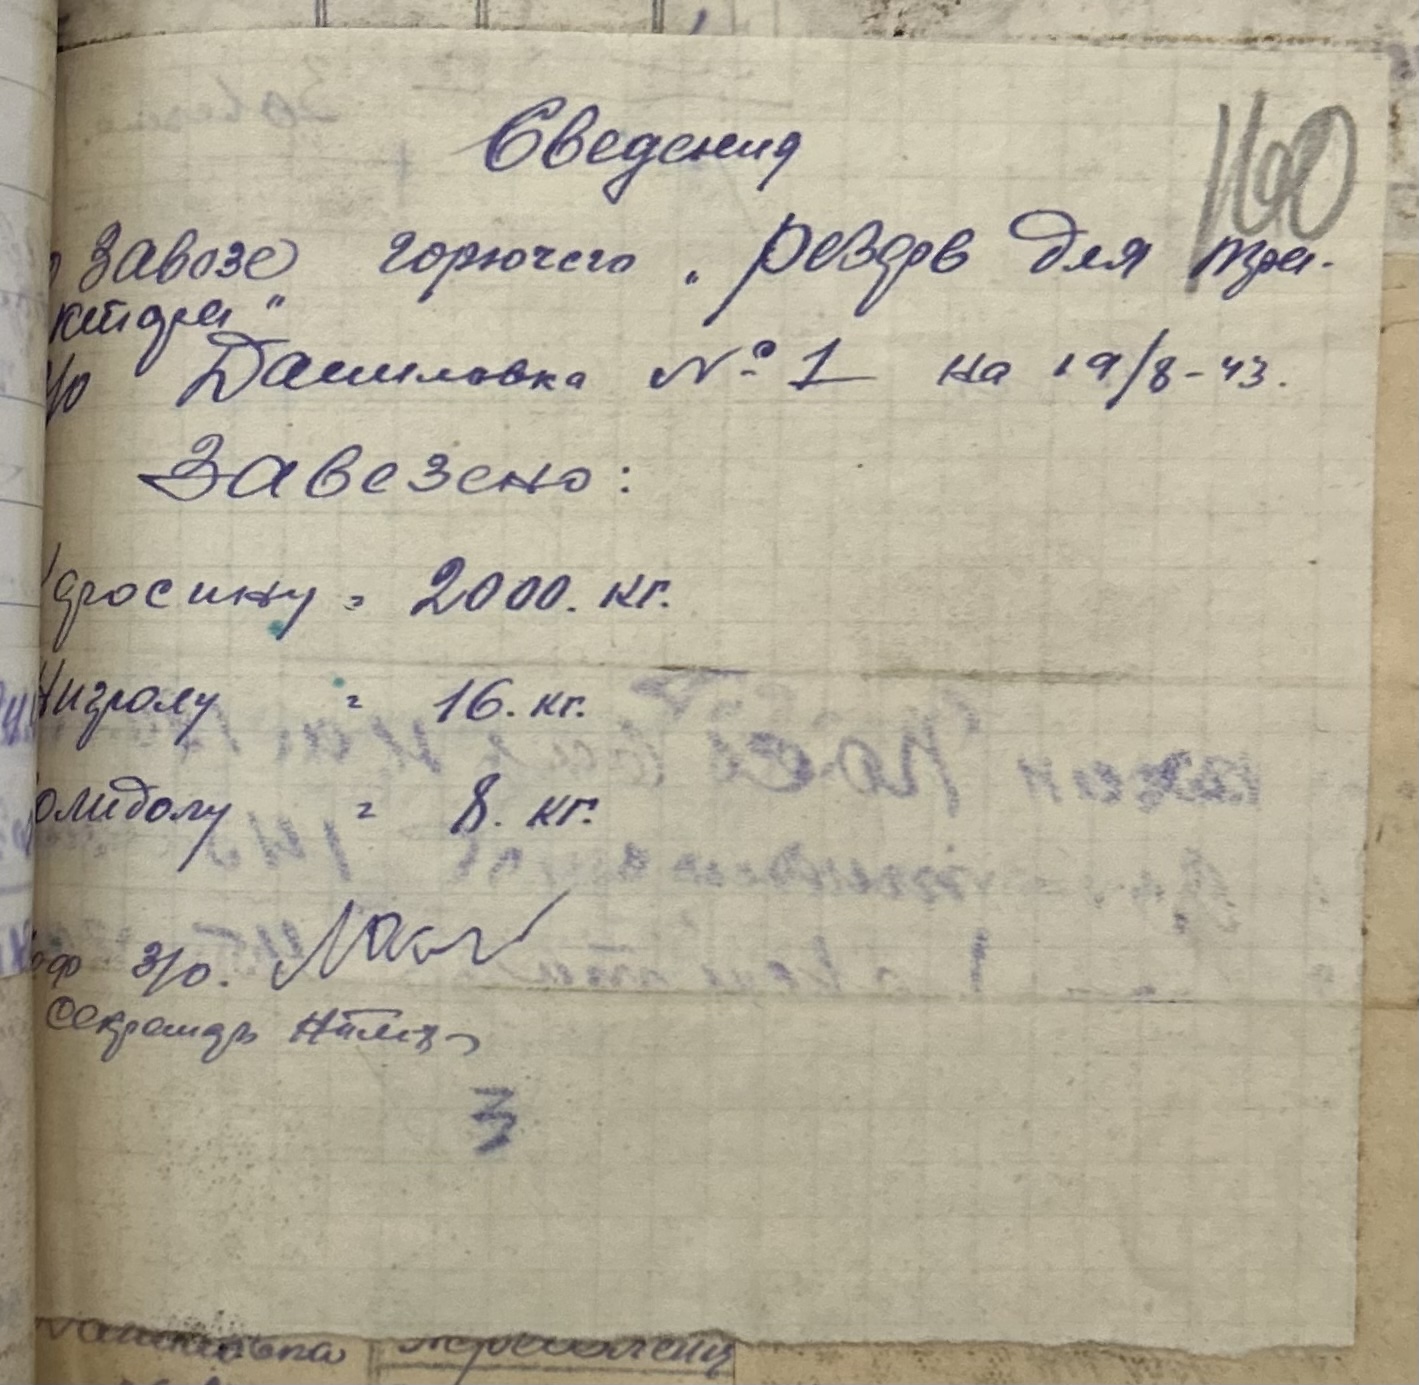 160
Сведения
о завозе горючего „резерв для тра-
ктора"
з/о Даниловка № 1 на 19/8-43.
Завезено:
Керосину = 2000. кг.
Нигролу = 16. кг.
Солидолу = 8. кг.
з/о.
Секретарь